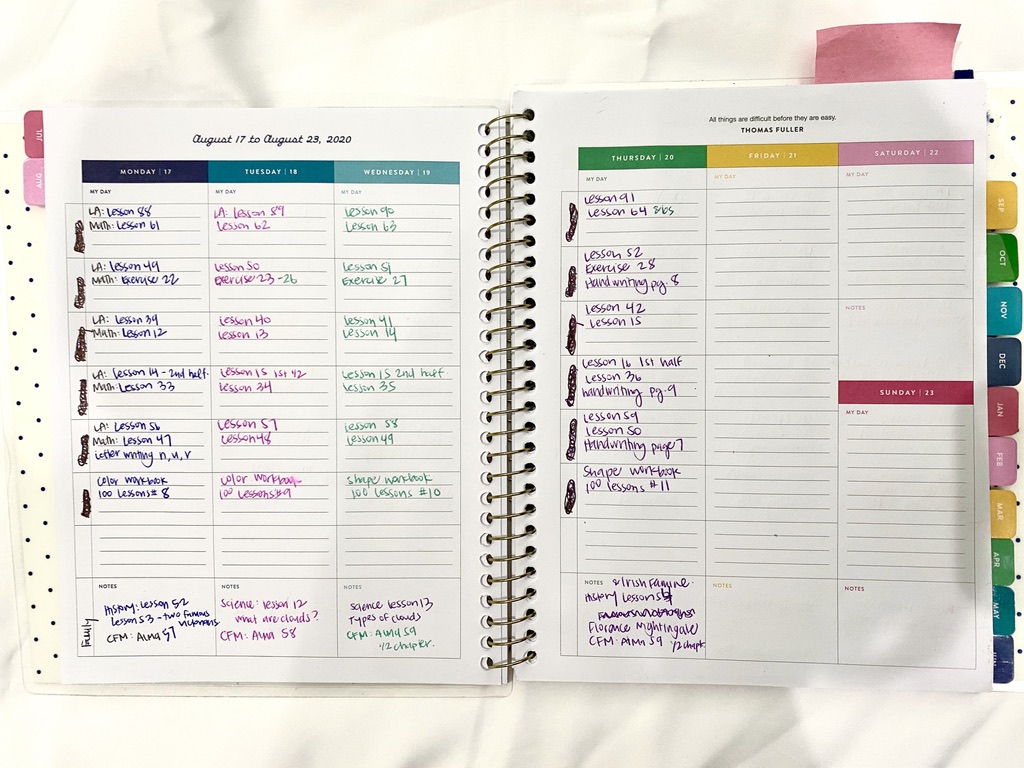 JUL
AUG
August 17 to August 23, 2020
MONDAY | 17
TUESDAY | 18
WEDNESDAY | 19
MY DAY
MY DAY
MY DAY
LA: Lesson 88
Math: Lesson 61
LA: Lesson 89
Lesson 62
Lesson 90
Lesson 63
LA: Lesson 49
Math: Exercise 22
Lesson 50
Exercise 23-26
Lesson 51
Exercise 27
LA: Lesson 39
Math: Lesson 12
Lesson 40
Lesson 13
Lesson 41
Lesson 14
LA: Lesson 14 - 2nd half.
Math: Lesson 33
Lesson 15 1st 42
Lesson 34
Lesson 15 2nd half
Lesson 35
LA: Lesson 56
Math: Lesson 47
Letter writing n, u, r
Lesson 57
Lesson 48
Lesson 58
Lesson 49
Color workbook
100 Lessons # 8
Color workbook
100 Lessons #9
Shape workbook
100 Lessons #10
NOTES
NOTES
NOTES
Family
History: Lesson 52
Lesson 53 - two famous
CFM: Alma 57
Science: Lesson 12
What are clouds?
CFM: Alma 58
Science Lesson 13
Types of clouds
CFM: Alma 59
1/2 chapter.
All things are difficult before they are easy.
THOMAS FULLER
THURSDAY | 20
FRIDAY | 21
SATURDAY | 22
MY DAY
MY DAY
MY DAY
Lesson 91
Lesson 64 & 65
Lesson 52
Exercise 28
Handwriting pg. 8
Lesson 42
Lesson 15
NOTES
Lesson 16 1st half
Lesson 36
handwriting pg. 9
SUNDAY | 23
MY DAY
Lesson 59
Lesson 50
Handwriting page 7
Shape workbook
100 Lessons #11
NOTES
& Irish Famine.
History Lesson
Florence Nightingale
CFM: Alma 59 1/2 chapt.
NOTES
NOTES
SEP
OCT
NOV
DEC
JAN
FEB
MAR
APR
MAY
JUN